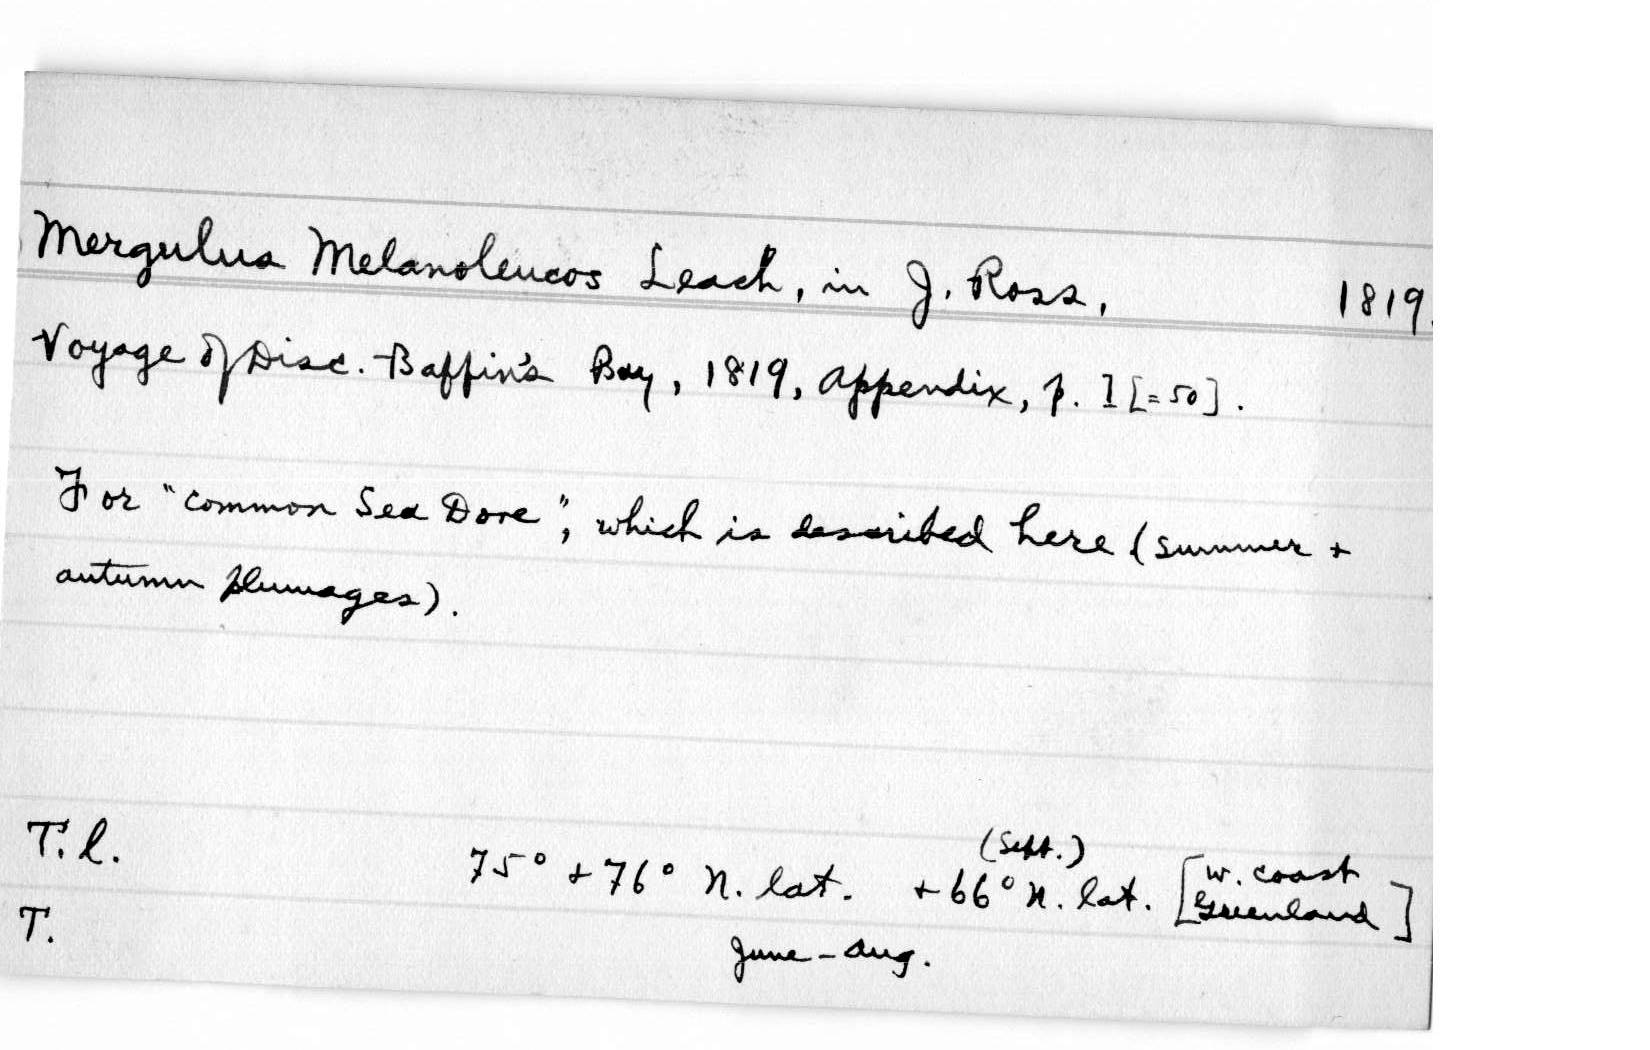 Mergulus Melanoleucos Leach, in J. Ross, 1819.
Voyage of Disc. Baffin's Bay, 1819, Appendix, p. l [=50].
For "common Sea Dove", which is described here (summer +
autumn plumages).
(Sept.)
T.l. 75° + 76° N. lat. + 66° N. lat. [w. coast Greenland]
T. June - Aug.